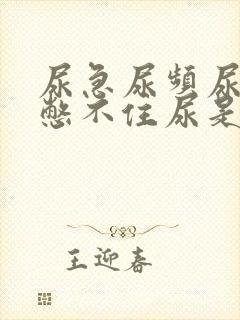 尿急尿频尿
憋不住尿是
王迎春